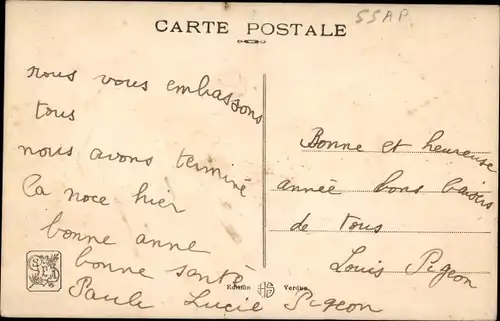 CARTE POSTALE
55AP.
nous vous embassons
tous
nous avons terminé
la noce hier
bonne anne
bonne santé
Paule Lucie Pigeon
Bonne et heureuse
année bons baisers
de tous
Louis Pigeon
Edition Verdun